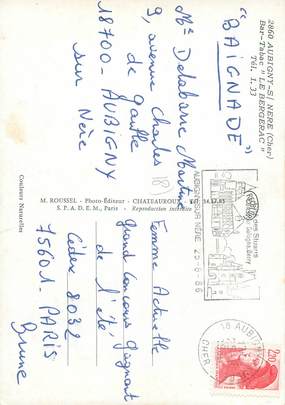 2860 AUBIGNY-S/ NERE (Cher)
Bar-Tabac " LE BERGERAC "
Tél. 1.33
"BAIGNADE"
Me Delabarre Martin
9, avenue Charles
de Gaulle
18700 - AUBIGNY
sur Nère
M. ROUSSEL - Photo-Éditeur - CHATEAUROUX - Tél. 34.17.65
S. P. A. D. E. M., Paris - Reproduction interdite
Couleurs Naturelles
18
AUBIGNY SUR NERE
25-8-86
des Stuarts
Sologne, Berry
18 AUBIGNY
CHER
2,20
Femme Actuelle
grand concours gagnant
de l'été
Cedex 8032
75601 - PARIS
Brune